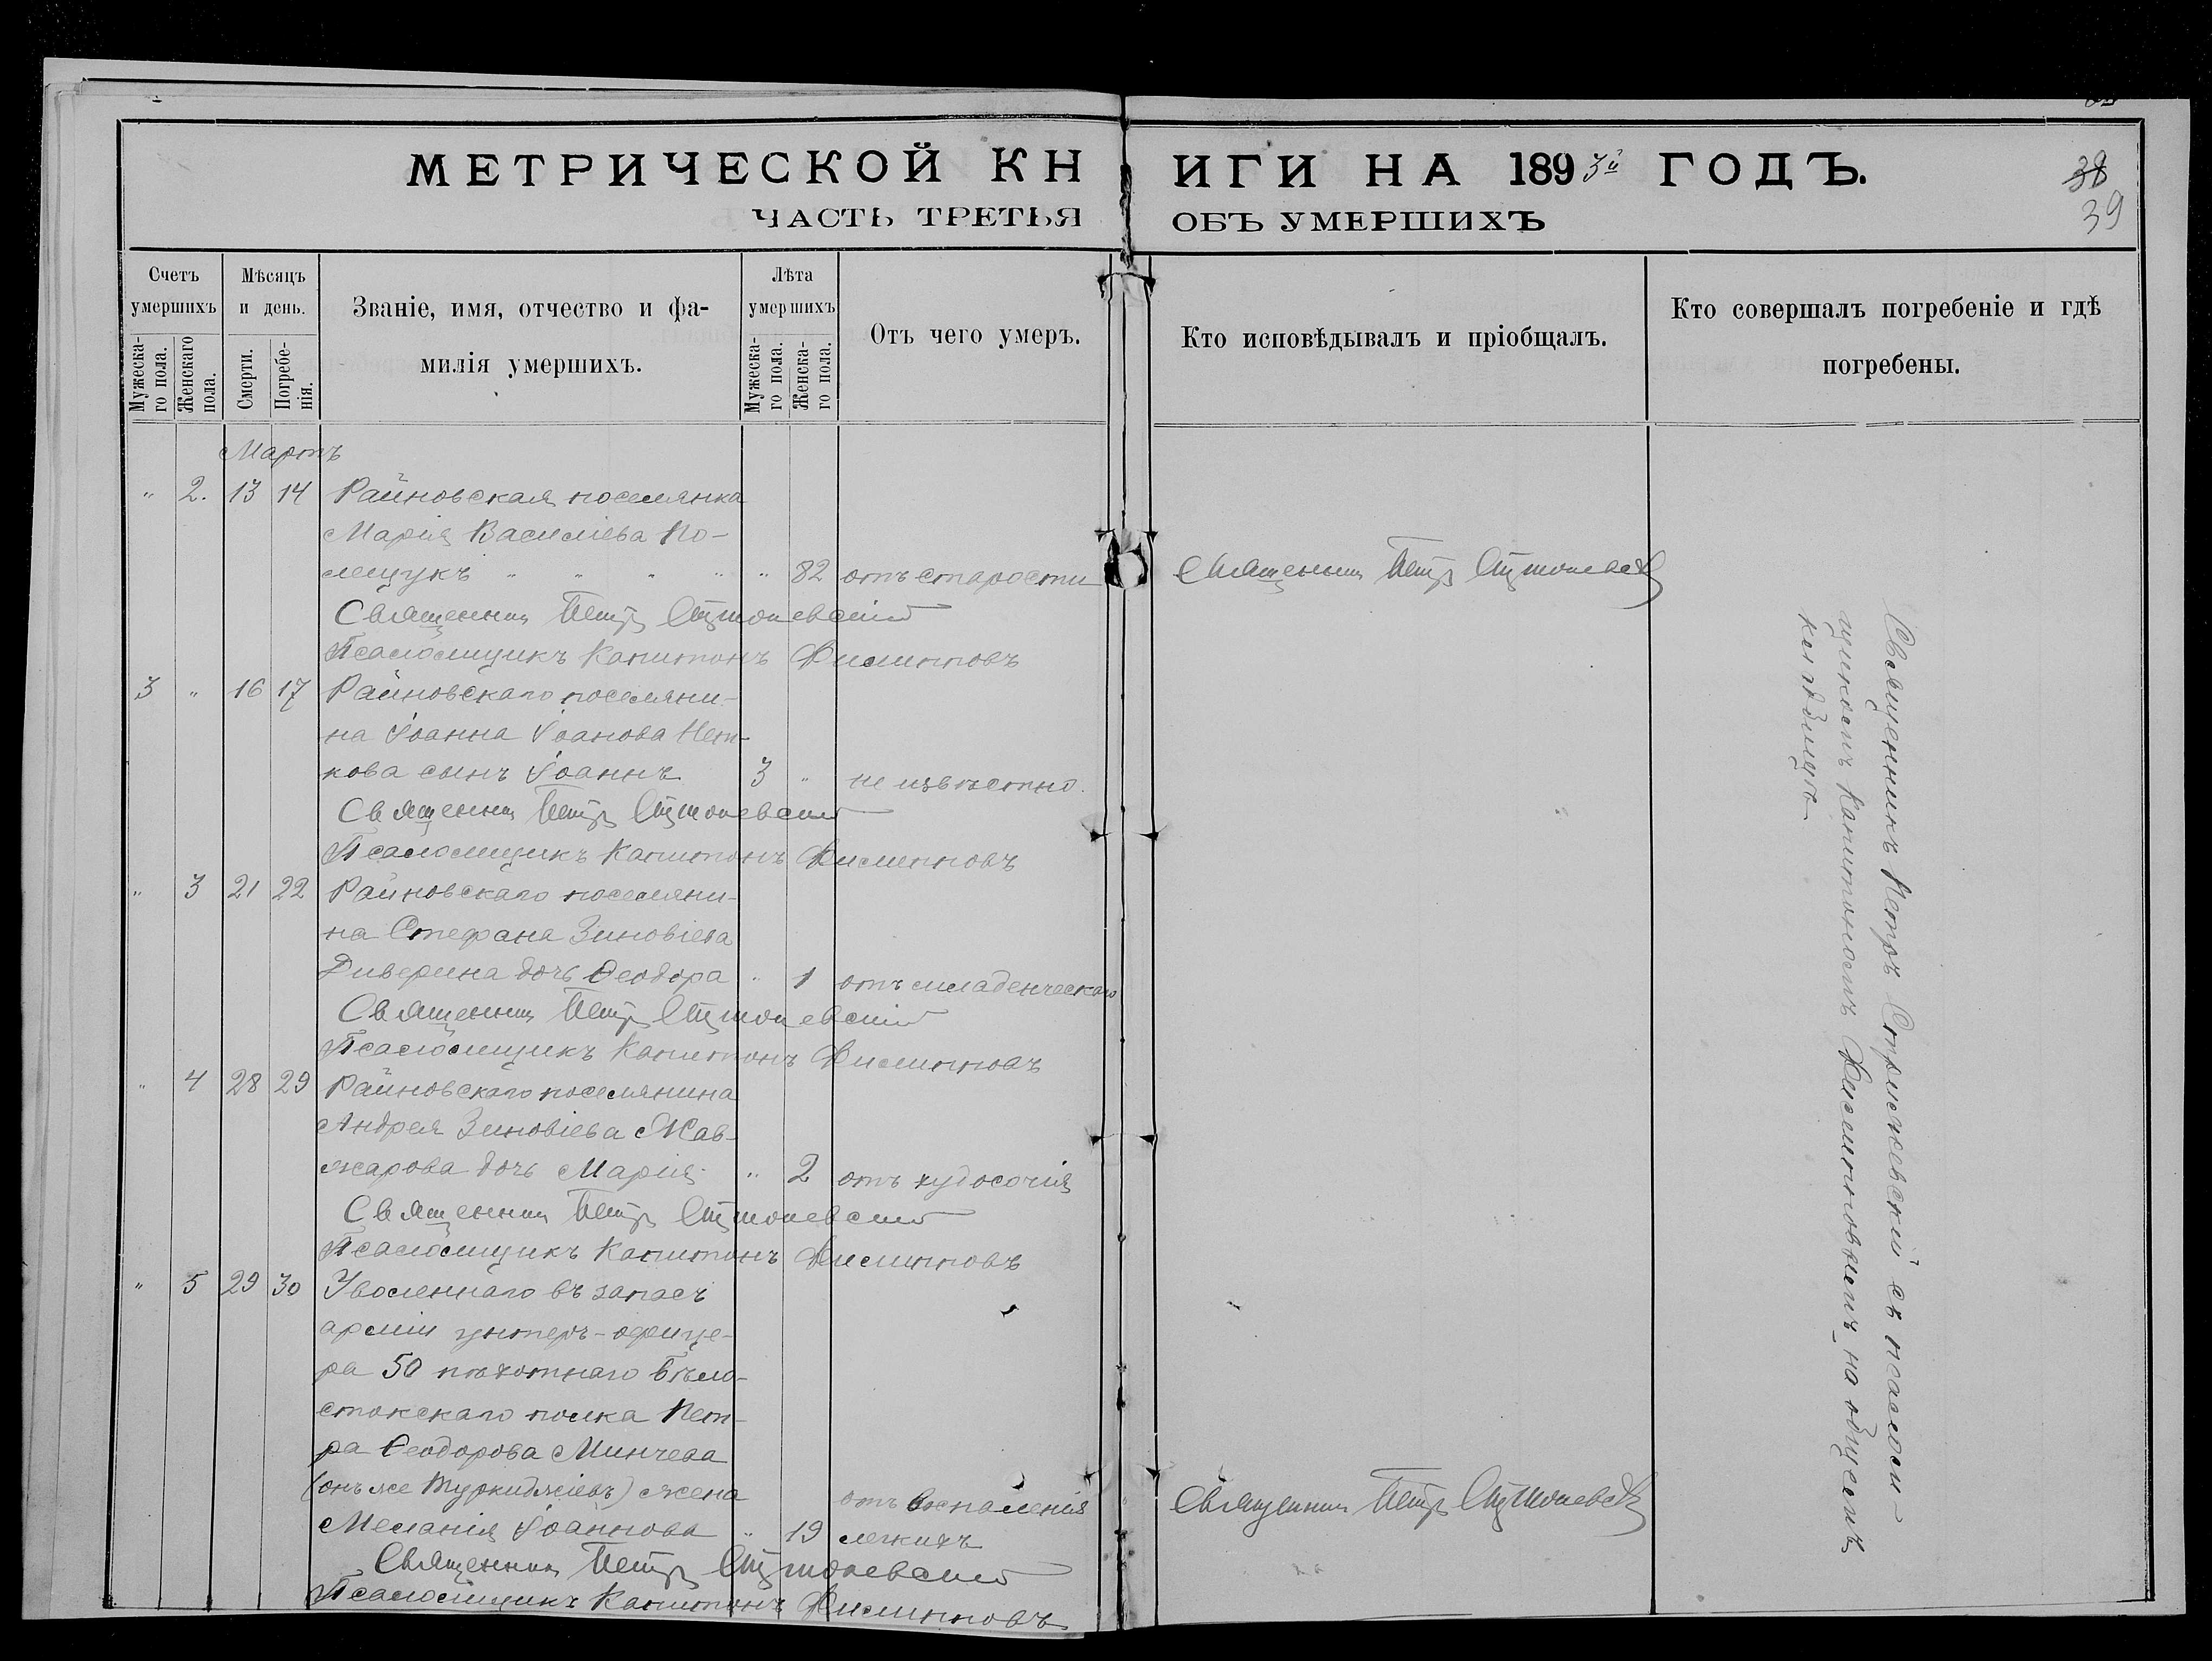 МЕТРИЧЕСКОЙ КНИГИ НА 1893й ГОДЪ.
38
39
ЧАСТЬ ТРЕТЬЯ ОБЪ УМЕРШИХЪ
Счетъ умершихъ
Мужеска-го пола.
Женскаго пола.
Мѣсяцъ и день.
Смерти.
Погребе-нія.
Званіе, имя, отчество и фа-
милія умершихъ.
Лѣта умершихъ
Мужеска-го пола.
Женска-го пола.
Отъ чего умеръ.
Кто исповѣдывалъ и пріобщалъ.
Кто совершалъ погребеніе и гдѣ
погребены.
Мартъ
" 2. 13 14 Райновская поселянка
Марія Василіева По-
лещукъ " " " " " 82 отъ старости Священникъ Петръ
Священникъ Петръ
Псаломщикъ Капитонъ Филипповъ
3 " 16 17 Райновскаго поселяни-
на Іоанна Іоанова Пет-
кова сынъ Іоаннъ 3 " не извѣстно.
Священникъ Петръ
Псаломщикъ Капитонъ Филипповъ
" 3 21 22 Райновскаго поселяни-
на Стефана Зиновіева
Диверина дочь Ѳеодора " 1 отъ младенческаго
Священникъ Петръ
Псаломщикъ Капитонъ Филипповъ
" 4 28 29 Райновскаго поселянина
Андрея Зиновіева Кав-
жарова дочь Марія " 2 отъ худосочія
Священникъ Петръ
Псаломщикъ Капитонъ Филипповъ
" 5 29 30 Уволеннаго въ запасъ
арміи унтеръ-офице-
ра 50 пѣхотнаго Бѣло-
стокскаго полка Пет-
ра Ѳеодорова Минчева
(онъ же Туркиджіевъ) жена
Меланія Іоаннова " 19 отъ воспаленія
легкихъ Священникъ Петръ
Священникъ Петръ
Псаломщикъ Капитонъ Филипповъ
Священникъ Петръ съ псаломщ-
щикомъ Капитономъ Филипповымъ на общемъ
кладбищѣ